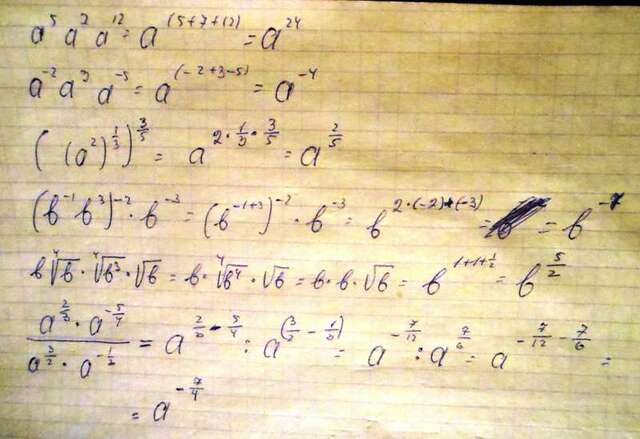 a⁵ a⁷ a¹² = a^(5+7+12) = a²⁴
a⁻² a³ a⁻⁵ = a^(-2+3-5) = a⁻⁴
((a²)^(1/3))^(3/5) = a^(2·1/3·3/5) = a^(2/5)
(b⁻¹ b³)⁻² · b⁻³ = (b⁻¹⁺³)⁻² · b⁻³ = b^(2·(-2)+(-3) = = b⁻⁷
b ⁴√b · ⁴√b³ · √b = b · ⁴√b⁴ · √b = b · b · √b = b^(1+1+1/2) = b^(5/2)
(a^(2/3) · a^(-5/4))/(a^(3/2) · a^(-1/3)) = a^(2/3 - 5/4) : a^(3/2 - 1/3) = a^(-7/12) : a^(7/6) = a^(-7/12 - 7/6) =
= a^(-7/4)